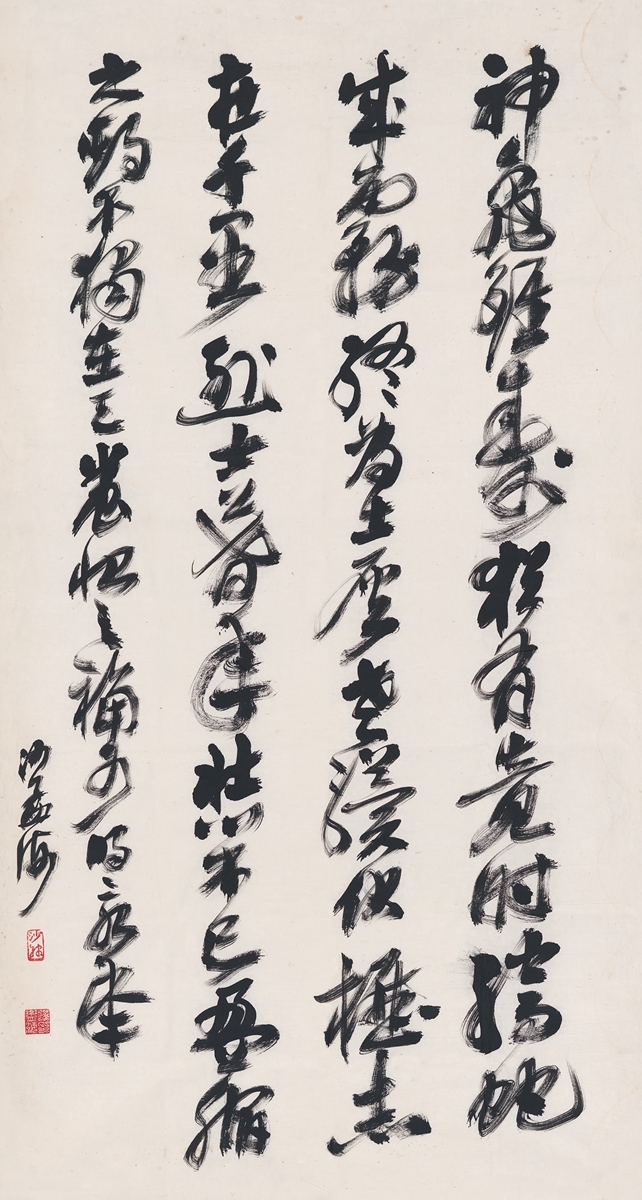 神龜雖壽猶有竟时騰蛇
成霧終為土灰老驥伏櫪志
在千里烈士暮年壯心不已盈縮
之期不獨在天養怡之福可得永年
沙孟海